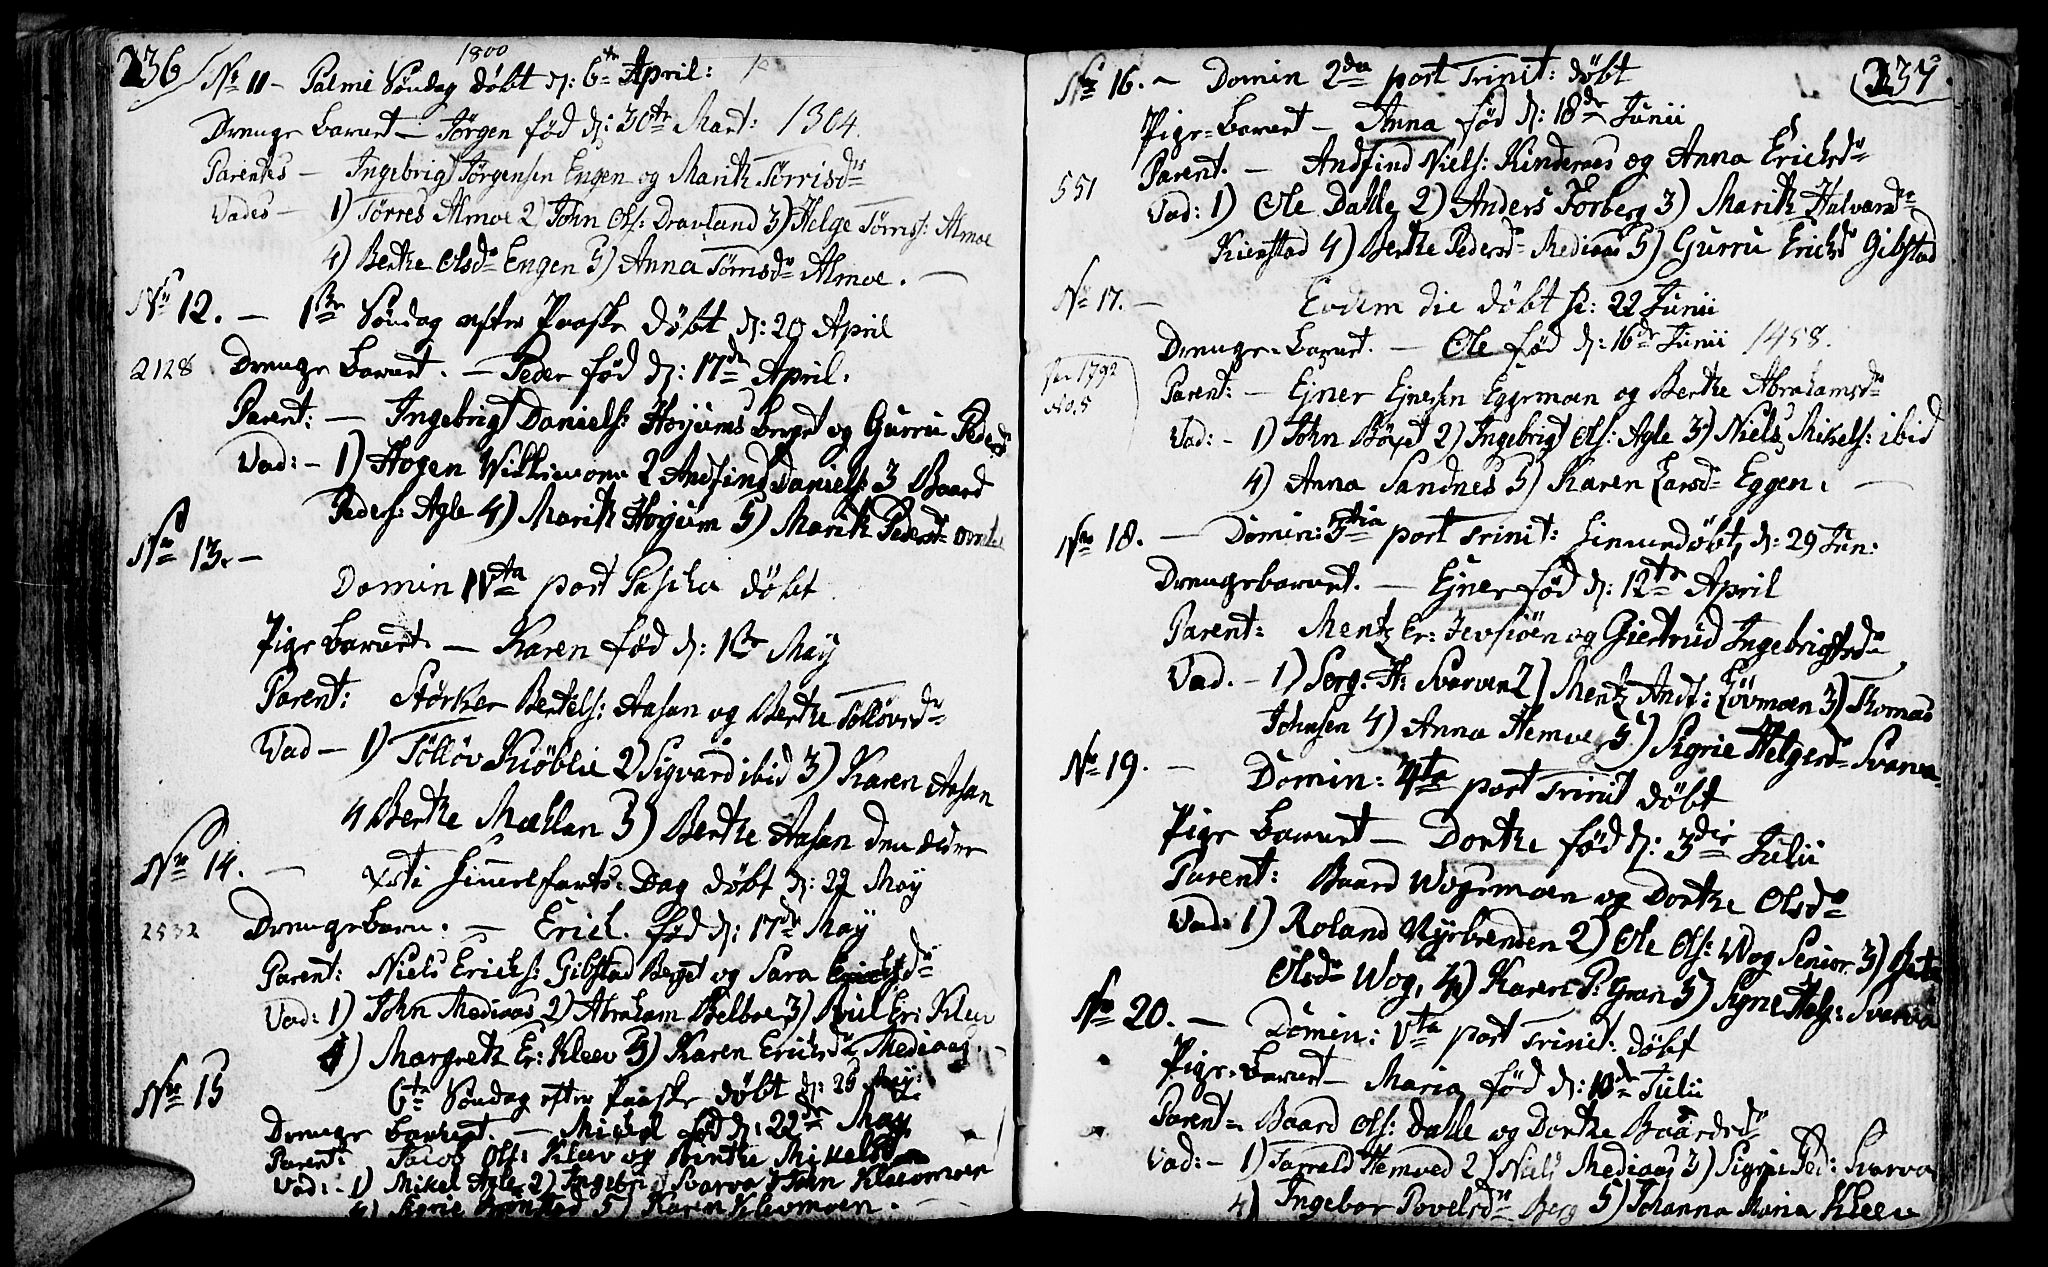 236
1800
No 11 - Palmi Søndag døbt d: 6te April:
Drenge barnet - Jörgen fød d: 30te Mart: 1304.
Parentes - Ingebrigt Jörgensen Engen og Marith Törrisdr
Vades - 1) Törres Almoe 2) John Ols: Dravland 3) Helge Törris: Almoe
4) Berthe Olsdr Engen 5) Anna Törrisdr Almoe. -
No 12. - 1ste Søndag efter Paaske døbt d: 20 April
2128 Drenge barnet. - Peder fød d: 17de April.
Parent: - Ingebrigt Daniels: Høyums berget og Gurru Pedersdr
Vad: - 1) Hogen 2 Andfind Daniels: 3 Baard
Peders: Agle 4) Marith Høyum 5) Marith Pedersdr
No 13. -
Domin IVta post Pascha døbt
Pige barnet. - Karen fød d: 1ste May
Parent: Störker Bertels: Aasan og Berthe Tölløvsdr
Vad - 1) Tölløv Kiöblie 2) Sigvard ibid 3) Karen Aasan
4 Berthe Mæhlan 5) Berthe Aasan den ældre
No 14. - Festi Himmelfarts-Dag døbt d: 22 May
2532 Drengebarn. - Erich. fød d: 17de May
Parent: Niels Erichs: Gibstad Berget og Sara Erichsdr
Vad: 1) John Mediaas 2) Abraham Belboe 3) Poul Er: Kleev
4) Margreth Er: Kleev 5) Karen Erichsdr Mediaas. -
No 15 6ta Søndag efter Paaske døbt d: 25 May:
Drenge barnet. - Michel fød d: 22de May
Parent: Jacob Ols: Kleev og Berthe Mikelsdr
Vad: - 1) Mikel Agle 2) Ingebr: Svarva 3 John Kleevmoen
4) Sigrie 5) Karen Klevmoen. -
237.
No 16. - Domin 2da post Trinit: døbt
Pige-barnet - Anna fød d: 18de Junii
Parent. - Andfind Niels: Kinderaas og Anna Erichsdr
551 Vad: 1) Ole Dahle 2) Anders Forberg 3) Marith Halvarsdr
Kierstad 4) Berthe Pedersdr Mediaas 5) Gurru Erichsdr Gibstad
No 17. - Eodem die døbt d: 22 Junii
Drenge-barnet. - Ole fød d: 16de Junii 1458.
1792
No. 5
Parent: - Ejner Ejnersen Eggermoen og Berthe Abrahamsdr
Vad: - 1) John 2) Ingebrigt Ols: Agle 3) Niels Mikels: ibid
4) Anna Sandnes 5) Karen Larsdr Eggen. -
No 18. - Domin: 3tia post Trinit: hiemmedøbt, d: 29 Jun:
Drengebarnet. - Ejner fød d: 12te April
Parent: Mentz Er: Jevsiöen og Giertrud Ingebrigtsdr
Vad. - 1) Serg: H: Svarven 2) Mentz And: Lövmoen 3) Thomas
Johnsen 4) Anna Hemve 5) Sigrie Helgesdr Svarva.
No 19. - Domin: 4ta post Trinit døbt
Pige barnet - Dorthe fød d: 3die Julii
Parent: Baard Wogermoen og Dorthe Olsdr
Vad: 1) Roland Nyebrenden 2) Ole Ols: Wog Senior 3)
Olsdr Wog, 4) Karen P: Gran 5) Signe Helg: Svarva
No 20. - Domin: Vta post Trinit: døbt
Pige-barnet - Maria fød d: 10de Julii
Parent- Baard Ols: Dahle og Dorthe Baardsdr
Vad: - 1) Tarrald Hemved 2) Niels Mediaas 3) Sigrie Ped: Svarva
4) Ingebor Povelsdr Berg 5) Johanna Maria Kleev